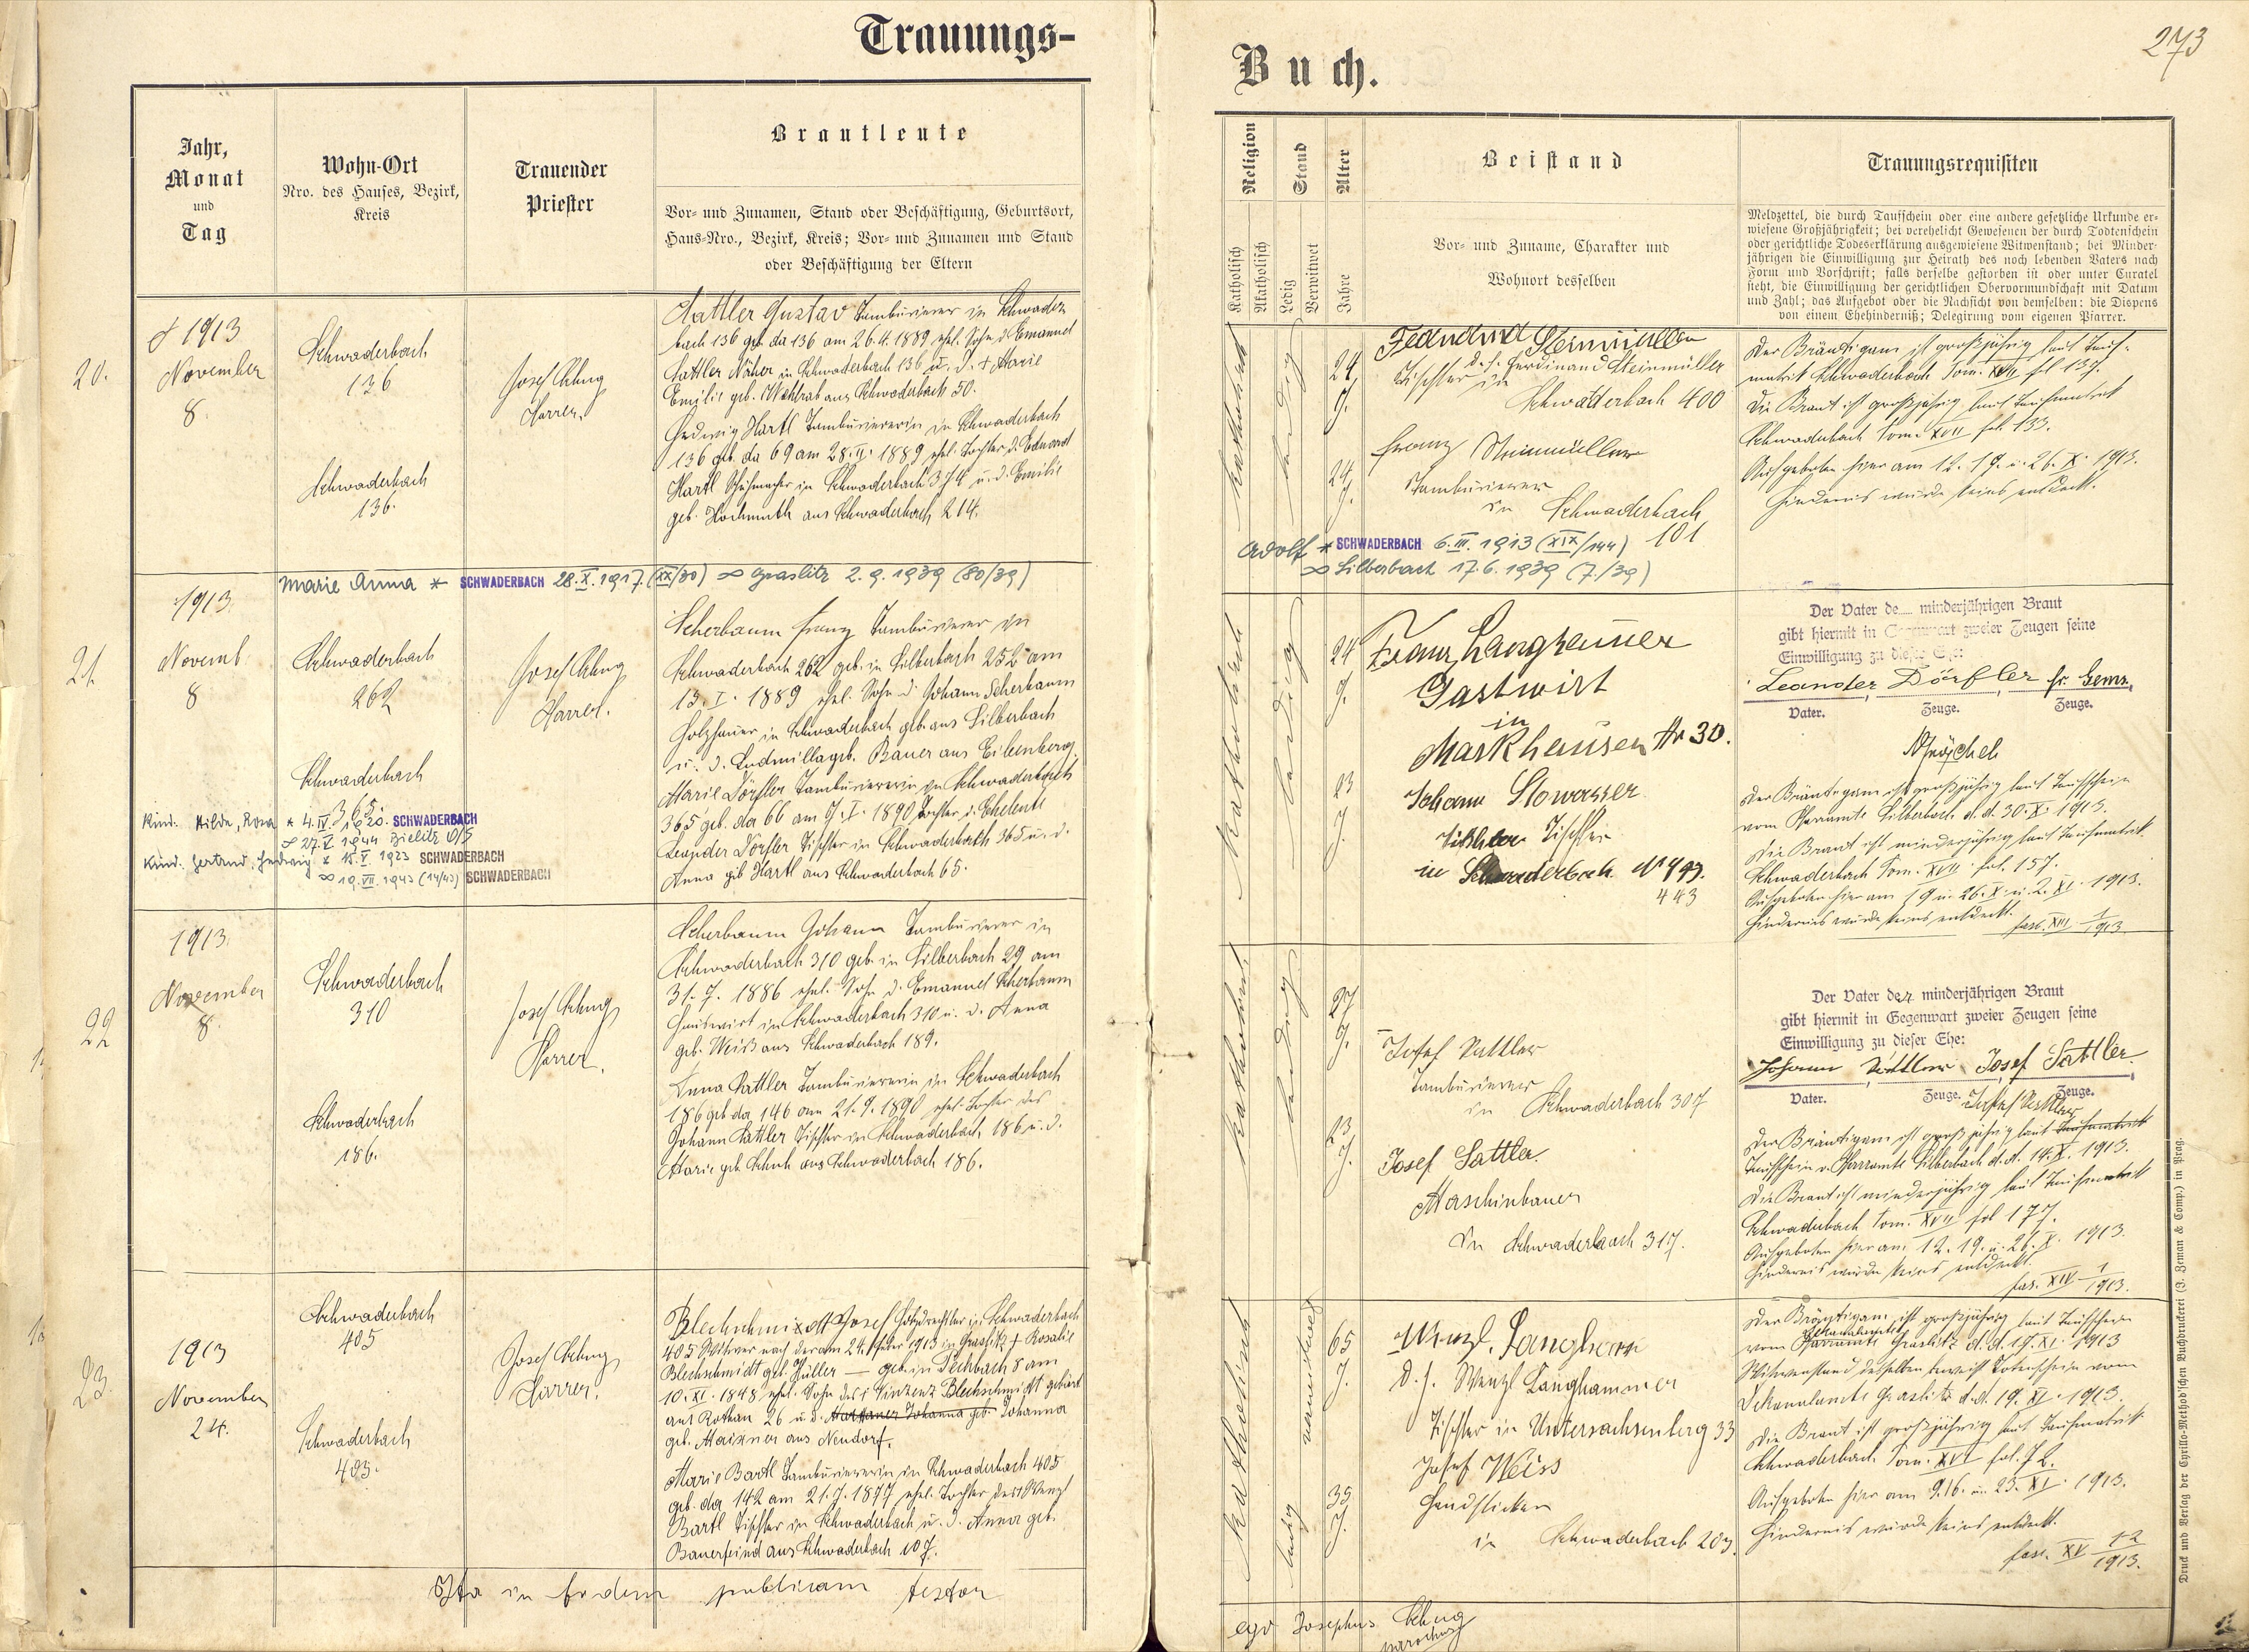 Trauungs-
Buch.
273
Jahr,
Monat
und
Tag
Wohn-Ort
Nro. des Hauses, Bezirk,
Kreis
Trauender
Priester
Brautleute
Vor- und Zunamen, Stand oder Beschäftigung, Geburtsort,
Haus-Nro., Bezirk, Kreis; Vor- und Zunamen und Stand
oder Beschäftigung der Eltern
Religion
Katholisch
Akatholisch
Stand
Ledig
Verwitwet
Alter
Jahre
Beistand
Vor- und Zuname, Charakter und
Wohnort desselben
Trauungsrequisiten
Meldzettel, die durch Taufschein oder eine andere gesetzliche Urkunde er-
wiesene Großjährigkeit; bei verehelicht Gewesenen der durch Todtenschein
oder gerichtliche Todeserklärung ausgewiesene Witwenstand; bei Minder-
jährigen die Einwilligung zur Heirath des noch lebenden Vaters nach
Form und Vorschrift; falls derselbe gestorben ist oder unter Curatel
steht, die Einwilligung der gerichtlichen Obervormundschaft mit Datum
und Zahl; das Aufgebot oder die Nachsicht von demselben: die Dispens
von einem Ehehinderniß; Delegirung vom eigenen Pfarrer.
20.
1913
November
8
Schwaderbach
136
Schwaderbach
136.
Josef
Pfarrer.
Sattler Gustav Tambürierer in Schwader
bach 136 geb. da 136 am 26.4.1889 ehel. Sohn d. Emanuel
Sattler Näher in Schwaderbach 136 u. d. + Marie
Emilie geb. aus Schwaderbach 50.
Hedwig Hartl Tambüriererin in Schwaderbach
136 geb. da 69 am 28.II.1889 ehel. Tochter d. Eduard
Hartl Schuhmacher in Schwaderbach 374 u. d. Emilie
geb. Hochmuth aus Schwaderbach 214.
katholisch
ledig
24
J.
24
J.
Ferdinand Steinmüller
d. J. Ferdinand Steinmüller
Tischler in
Schwaderbach 400
Franz Steinmüller
Tambürierer
in Schwaderbach
101
Der Bräutigam ist großjährig laut Tauf-
matrik Schwaderbach Tom. XVII fol 137.
Die Braut ist großjährig laut Taufmatrik
Schwaderbach Tom. XVII fol. 133.
Aufgeboten hier am 12. 19. u. 26. X. 1913.
Hindernis wurde keines entdeckt.
Adolf * SCHWADERBACH 6.III.1913 (XIX/144)
∞ Silberbach 17.6.1939 (7./39)
Marie Anna * SCHWADERBACH 28.X.1917. (XX/30) ∞ Graslitz 2.9.1939 (80/39)
21.
1913
Novemb
8
Schwaderbach
262
Schwaderbach
365.
Kind. Hilde, Rosa * 4.IV.1920. SCHWADERBACH
∞ 27.V.1944 Bielitz O/S
Kind. Gertrud, Hedwig * 15.V.1923 SCHWADERBACH
∞ 19.VII.1943 (14/43) SCHWADERBACH
Josef
Pfarrer.
Scherbaum Franz Tambürierer in
Schwaderbach 262 geb. in Silberbach 252 am
13.I.1889 ehel. Sohn d. Johann Scherbaum
Holzhauer in Schwaderbach geb. aus Silberbach
u. d. Ludmilla geb. Bauer aus Eibenberg.
Marie Dörfler Tambüriererin in Schwaderbach
365 geb. da 66 am 7.I.1890 Tochter d. Eheleute
Leander Dörfler Tischler in Schwaderbach 365 u. d.
Anna geb Hartl aus Schwaderbach 65.
katholisch
ledig
24
J.
23
J.
Franz Langhammer
Gastwirt
in
Markhausen Nr 30.
Johann Stowasser
Tischler
in Schwaderbach Nº 443.
443
Der Vater de minderjährigen Braut
gibt hiermit in Gegenwart zweier Zeugen seine
Einwilligung zu dieser Ehe:
Leander Dörfler
Vater. Zeuge. Zeuge.
Der Bräutigam ist großjährig laut Taufschein
vom Pfarramte Silberbach d. d. 30.X.1913.
Die Braut ist minderjährig laut Taufmatrik
Schwaderbach Tom. XVII fol. 157.
Aufgeboten hier am 19 u. 26. X. u. 2. XI. 1913.
Hindernis wurde keines entdeckt.
fasc. XIII 1/1913
22
1913.
November
8.
Schwaderbach
310
Schwaderbach
186.
Josef
Pfarrer.
Scherbaum Johann Tambürierer in
Schwaderbach 310 geb. in Silberbach 29 am
31.7.1886 ehel. Sohn d. Emanuel Scherbaum
Gastwirt in Schwaderbach 310 u. d. Anna
geb. Weiß aus Schwaderbach 189.
Anna Sattler Tambüriererin in Schwaderbach
186 geb da 146 am 21.9.1890 ehel. Tochter des
Johann Sattler Tischler in Schwaderbach 186 u. d.
Marie geb. Schuh aus Schwaderbach 186.
katholisch
ledig
27
J.
23
J.
Josef Sattler
Tambürierer
in Schwaderbach 307
Josef Sattler
Maschinbauer
in Schwaderbach 317.
Der Vater der minderjährigen Braut
gibt hiermit in Gegenwart zweier Zeugen seine
Einwilligung zu dieser Ehe:
Johann Sattler Josef Sattler
Vater. Zeuge. Zeuge.
Josef Sattler
Der Bräutigam ist großjährig laut Taufmatrik
Taufschein v. Pfarramte Silberbach d. d. 14.X.1913.
Die Braut ist minderjährig laut Taufmatrik
Schwaderbach Tom. XVII fol 177.
Aufgeboten hier am 12. 19. u. 26. X. 1913.
Hindernis wurde keines entdeckt.
fas. XIV 1/1913.
23.
1913
November
24.
Schwaderbach
405
Schwaderbach
403.
Josef
Pfarrer.
Blechschmidt Josef Holzdrechsler in Schwaderbach
405 Witwer nach der am 24. 1913 in Graslitz + Rosalie
Blechschmidt geb. Hüller — geb. in Pechbach 8 am
10.XI.1848 ehel. Sohn des Vinzenz Blechschmidt gebürt
aus Rothau 26 u. d. Johanna geb. Johanna
geb. Maixner aus Neudorf.
Marie Bartl Tambüriererin in Schwaderbach 405
geb. da 142 am 21.7.1877 ehel. Tochter des Wenzl
Bartl Tischler in Schwaderbach u. d. Anna geb.
Bauerfeind aus Schwaderbach 107.
katholisch
verwitwet
ledig
65
J.
35
J.
Wenzl. Langham
d. J. Wenzl Langhammer
Tischler in Untersachsenberg 33
Josef Weiss
Handsticker
in Schwaderbach 203.
Der Bräutigam ist großjährig laut Taufschein
Dekanalamte
vom Pfarramte Graslitz d. d. 19.XI.1913
Witwenstand desselben beweist Totenschein vom
Dekanalamte Graslitz d. d. 19.XI.1913.
Die Braut ist großjährig laut Taufmatrik
Schwaderbach Tom. XVI fol. 72.
Aufgeboten hier am 9. 16. u. 23. XI. 1913.
Hindernis wurde keines entdeckt.
fasc. XV 1-2/1913.
Ita in fidem publicam testor
ego Josephus
parochus
Druck und Verlag der Cyrillo-Method'schen Buchdruckerei (J. Zeman & Comp.) in Prag.